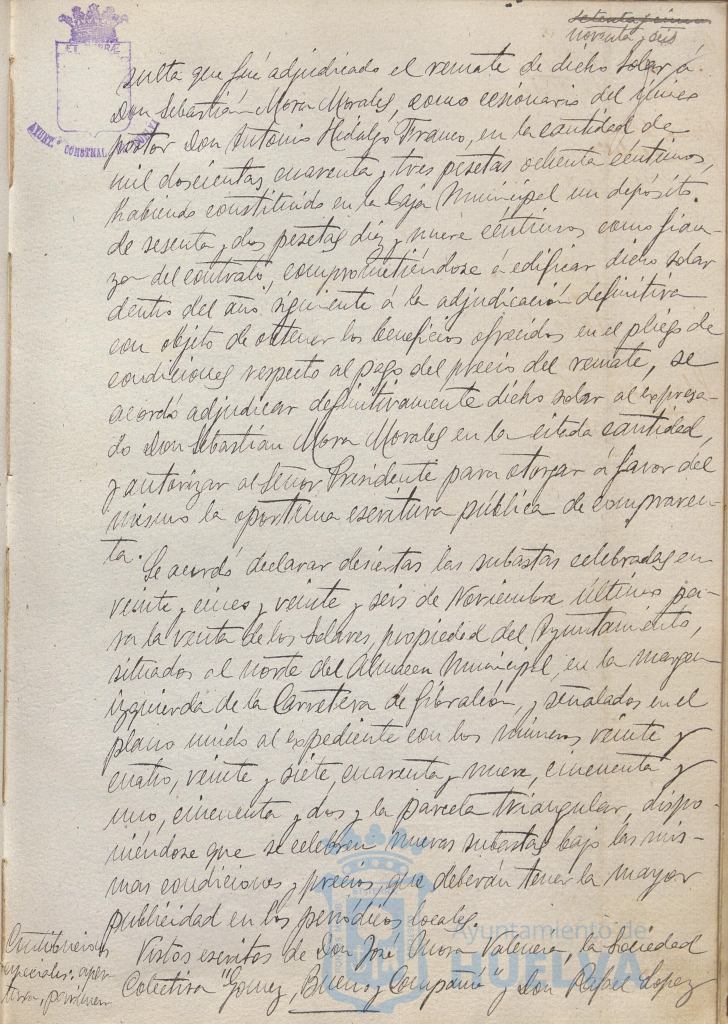 setenta y cinco
noventa y seis
sulta que fué adjudicado el remate de dicho solar á
Don Sebastián Mora Morales, como cesionario del mejor
postor Don Antonio Hidalgo Franco, en la cantidad de
mil doscientas cuarenta y tres pesetas ochenta céntimos,
habiendo constituido en la Caja Municipal un depósito
de sesenta y dos pesetas diez y nueve céntimos como fian-
za del contrato, comprometiéndose á edificar dicho solar
dentro del año siguiente á la adjudicación definitiva
con objeto de obtener los beneficios ofrecidos en el pliego de
condiciones respecto al pago del precio del remate, se
acordó adjudicar definitivamente dicho solar al expresa-
do Don Sebastián Mora Morales en la citada cantidad,
y autorizar al Señor Presidente para otorgar á favor del
mismo la oportuna escritura pública de compraven-
ta.
Se acordó declarar desiertas las subastas celebradas en
veinte y cinco y veinte y seis de Noviembre último pa-
ra la venta de los Solares, propiedad del Ayuntamiento,
situados al norte del Almacen Municipal, en la margen
izquierda de la Carretera de Gibraleón, y señalados en el
plano unido al expediente con los números veinte y
cuatro, veinte y siete, cuarenta y nueve, cincuenta y
uno, cincuenta y dos y la parcela triangular, dispo-
niéndose que se celebren nuevas subastas bajo las mis-
mas condiciones y precios, que deberán tener la mayor
publicidad en los periódicos locales.
Contribuciones
especiales, aper-
tura,
Vistos escritos de Don José Mora Valencia, la Sociedad
Colectiva "Gomez, Bueno y Compañía" y Don Rafael Lopez
AYUNT.º CONSTNAL
Ayuntamiento de
HUELVA